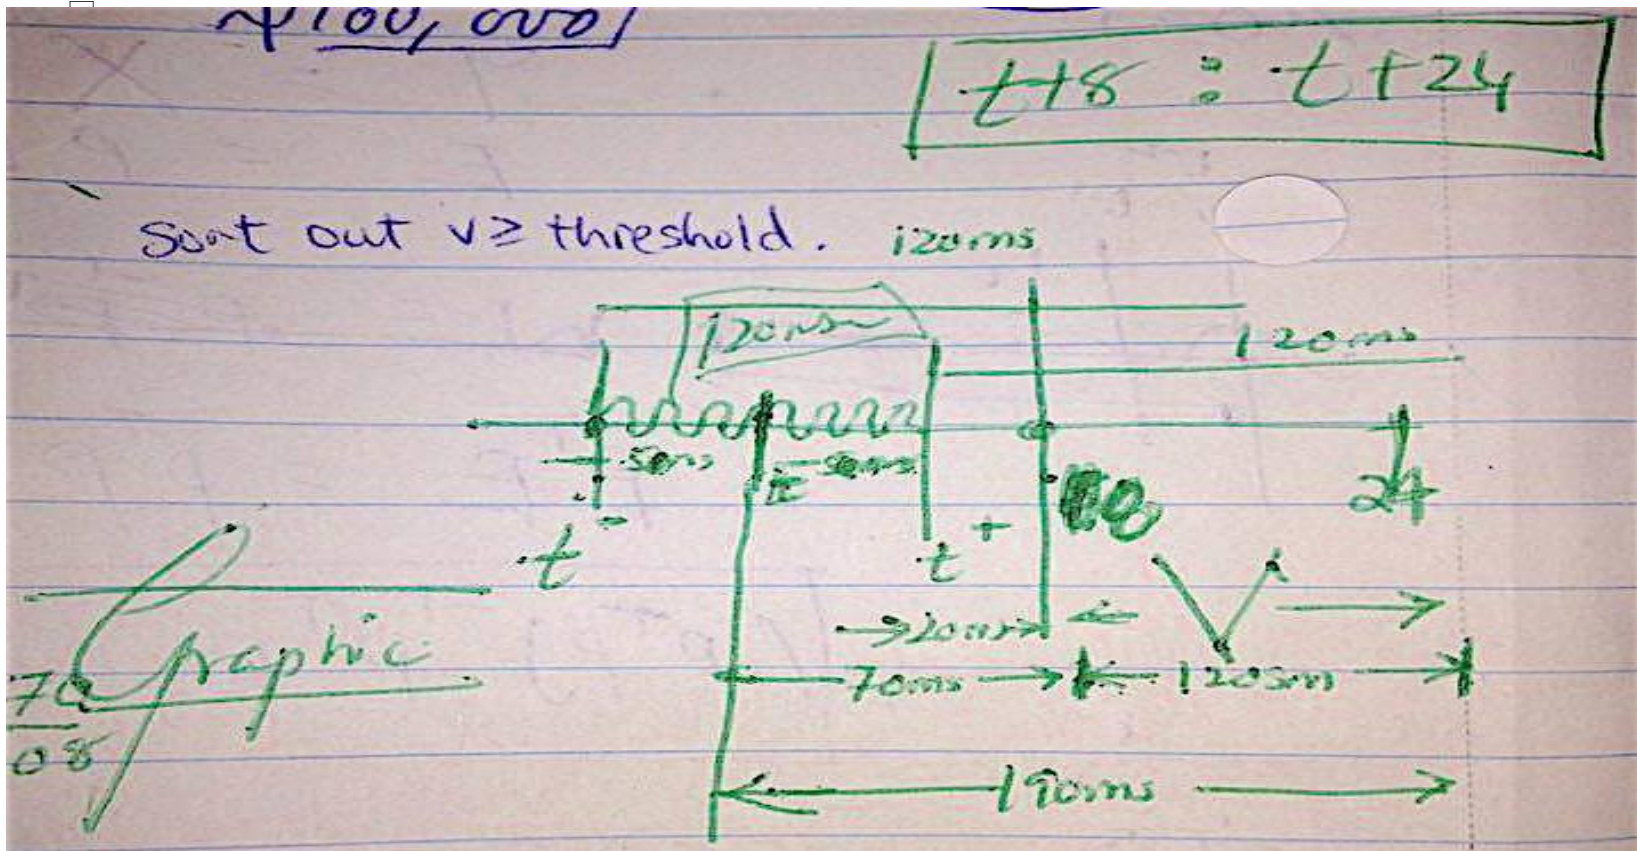 100,000
t+8 : t+24
Sort out v ≥ threshold.
120ms
120ms
120ms
50ms
50ms
24
t-
t+
20ms
V
Graphic
70ms
120sm
70
08
190ms